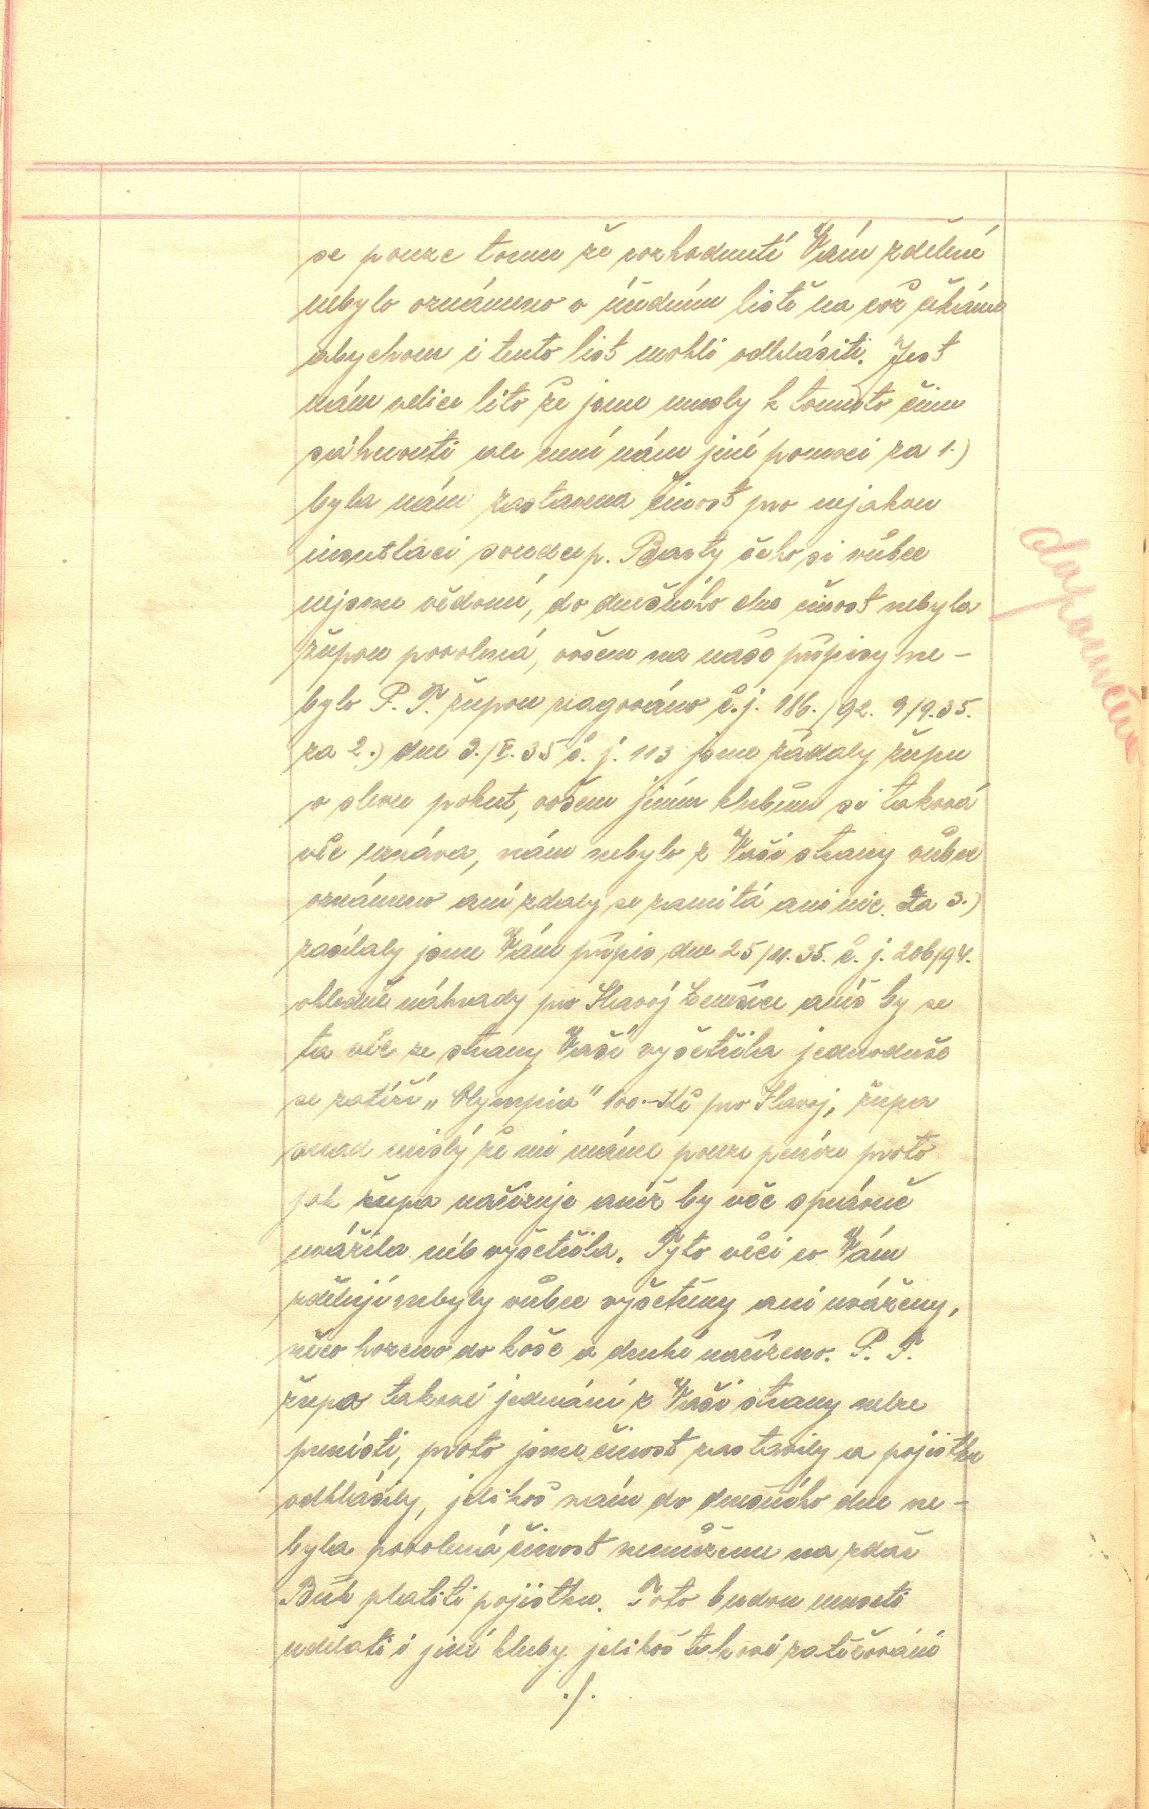 se pouze tomu že rozhodnutí Vám zdělené
nebylo oznámeno v úředním listě na což čekáme
abychom i tento list mohli odhlásiti. Jest
nám velice líto že jsme musely k tomuto činu
sáhnouti ale není nám jiné pomoci za 1.)
byla nám zastavena činost pro nejakou
insultaci soudce p. Basty čeho si vůbec
nejsme vědomi, do dnešního dne činost nebyla
župou povolená, ovšem na naše přípisy ne-
bylo P. T. župou reagováno č.j. 186./92. 9/9.35.
za 2.) dne 3./V. 35 č. j. 113 jsme žádaly župu
o slevu pokut, ovšem jiným klubům se taková
věc uznává, nám nebylo z Vaší strany vůbec
oznámeno ani zdaly se zamítá ani nic. Za 3.)
zasílaly jsme Vám přípis dne 25/ 35. č. j. 206/94.
ohledně náhrady pro Slavoj aniš by se
ta věc ze strany Vaší vyšetřila jednoduše
se zatíží „Olympia" 100.-Kč pro Slavoj, župa
snad mislý že mi máme pouze peníze proto
jak župa nařizuje aniž by věc správně
uvážila neb vyšetřila. Tyto věci co Vám
zdělují nebyly vůbec vyšetřeny ani uváženy,
něco hozeno do koše a druhé nařízeno. P. T.
župo takové jednání z Vaší strany nelze
prominouti, proto jsme činost zastavily a pojistku
odhlásily, jelikoš nám do dnešního dne ne-
byla povolená činost nemůžeme na zdař
Bůh platiti pojistku. Toto budou museti
udělati i jiné kluby jelikoš takové zatěžování
./.